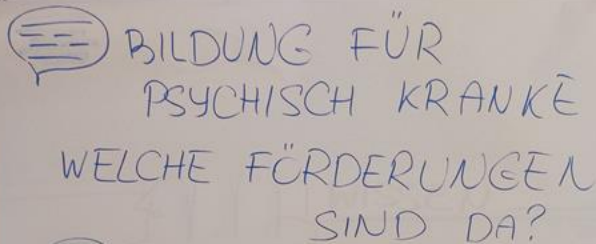 BILDUNG FÜR
PSYCHISCH KRANKE
WELCHE FÖRDERUNGEN
SIND DA?